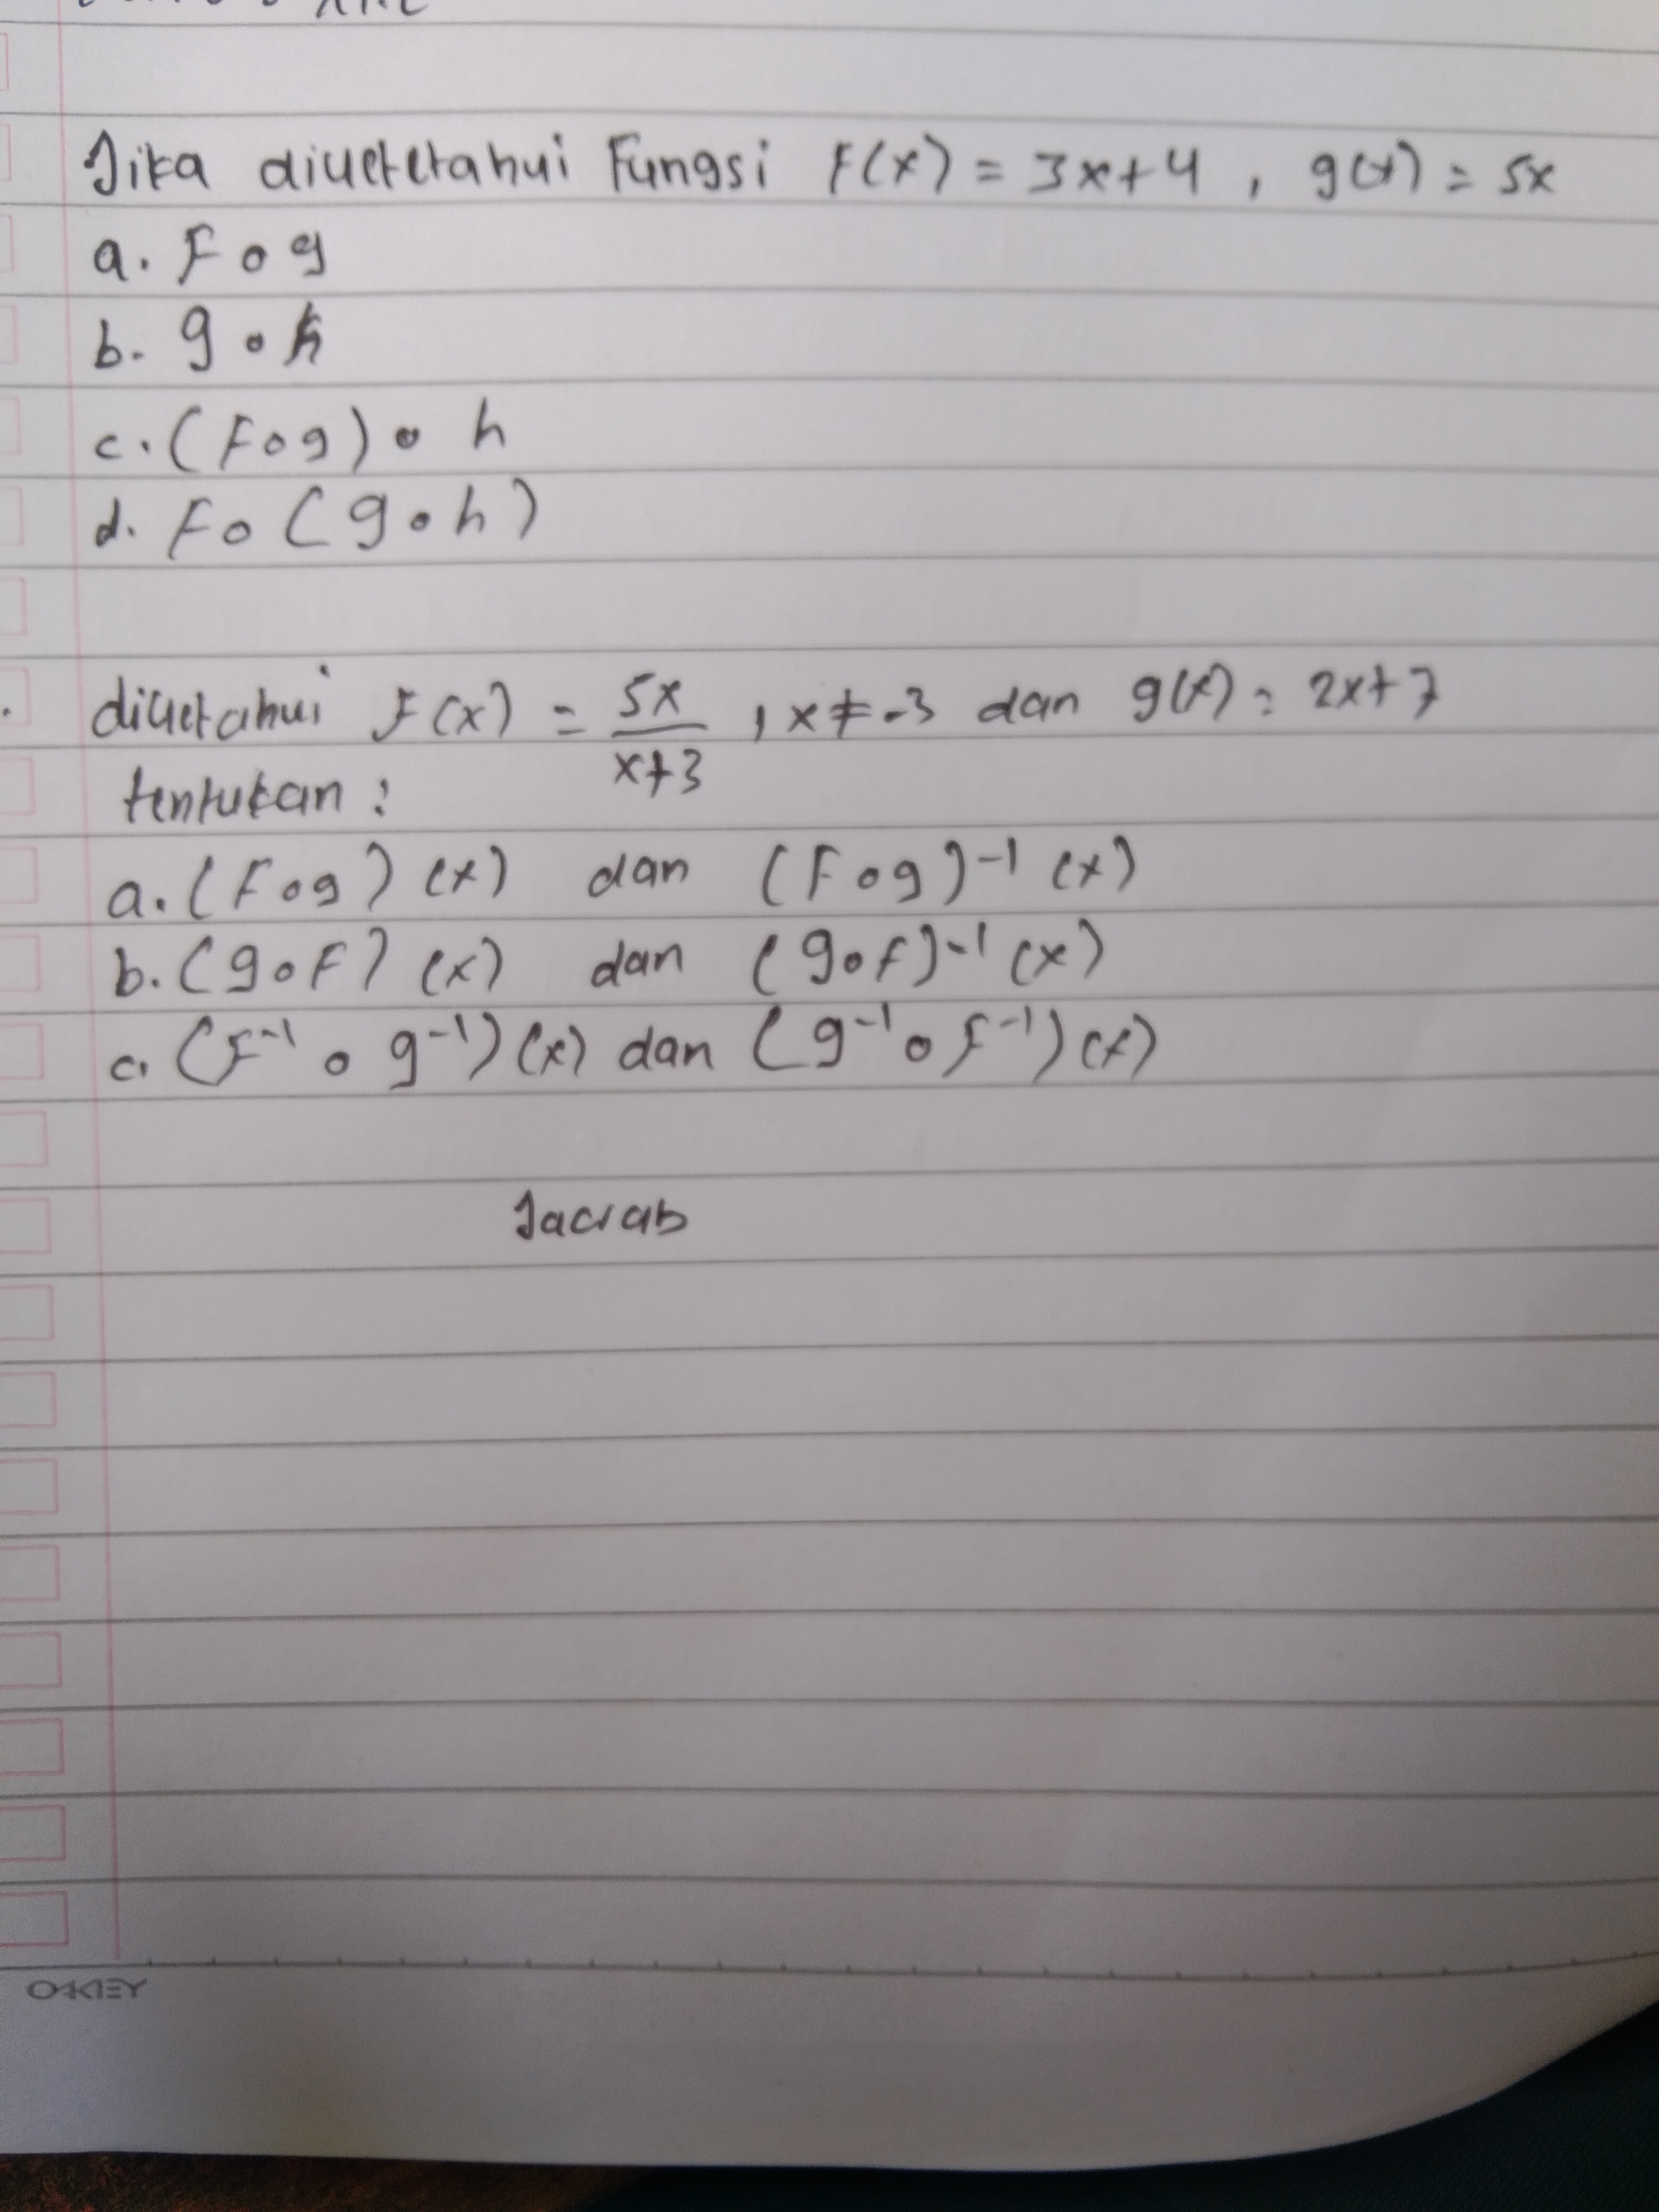 Jika diketetahui Fungsi F(x) = 3x+4 , g(x) = 5x
a. F o g
b. g o h
c. (F o g) o h
d. F o (g o h)
. diketahui F(x) = 5x/x+3 , x ≠ -3 dan g(x) = 2x+7
tentukan :
a. (F o g) (x) dan (F o g)-1 (x)
b. (g o F) (x) dan (g o f)-1 (x)
c. (F-1 o g-1) (x) dan (g-1 o F-1) (x)
Jawab
OKEY